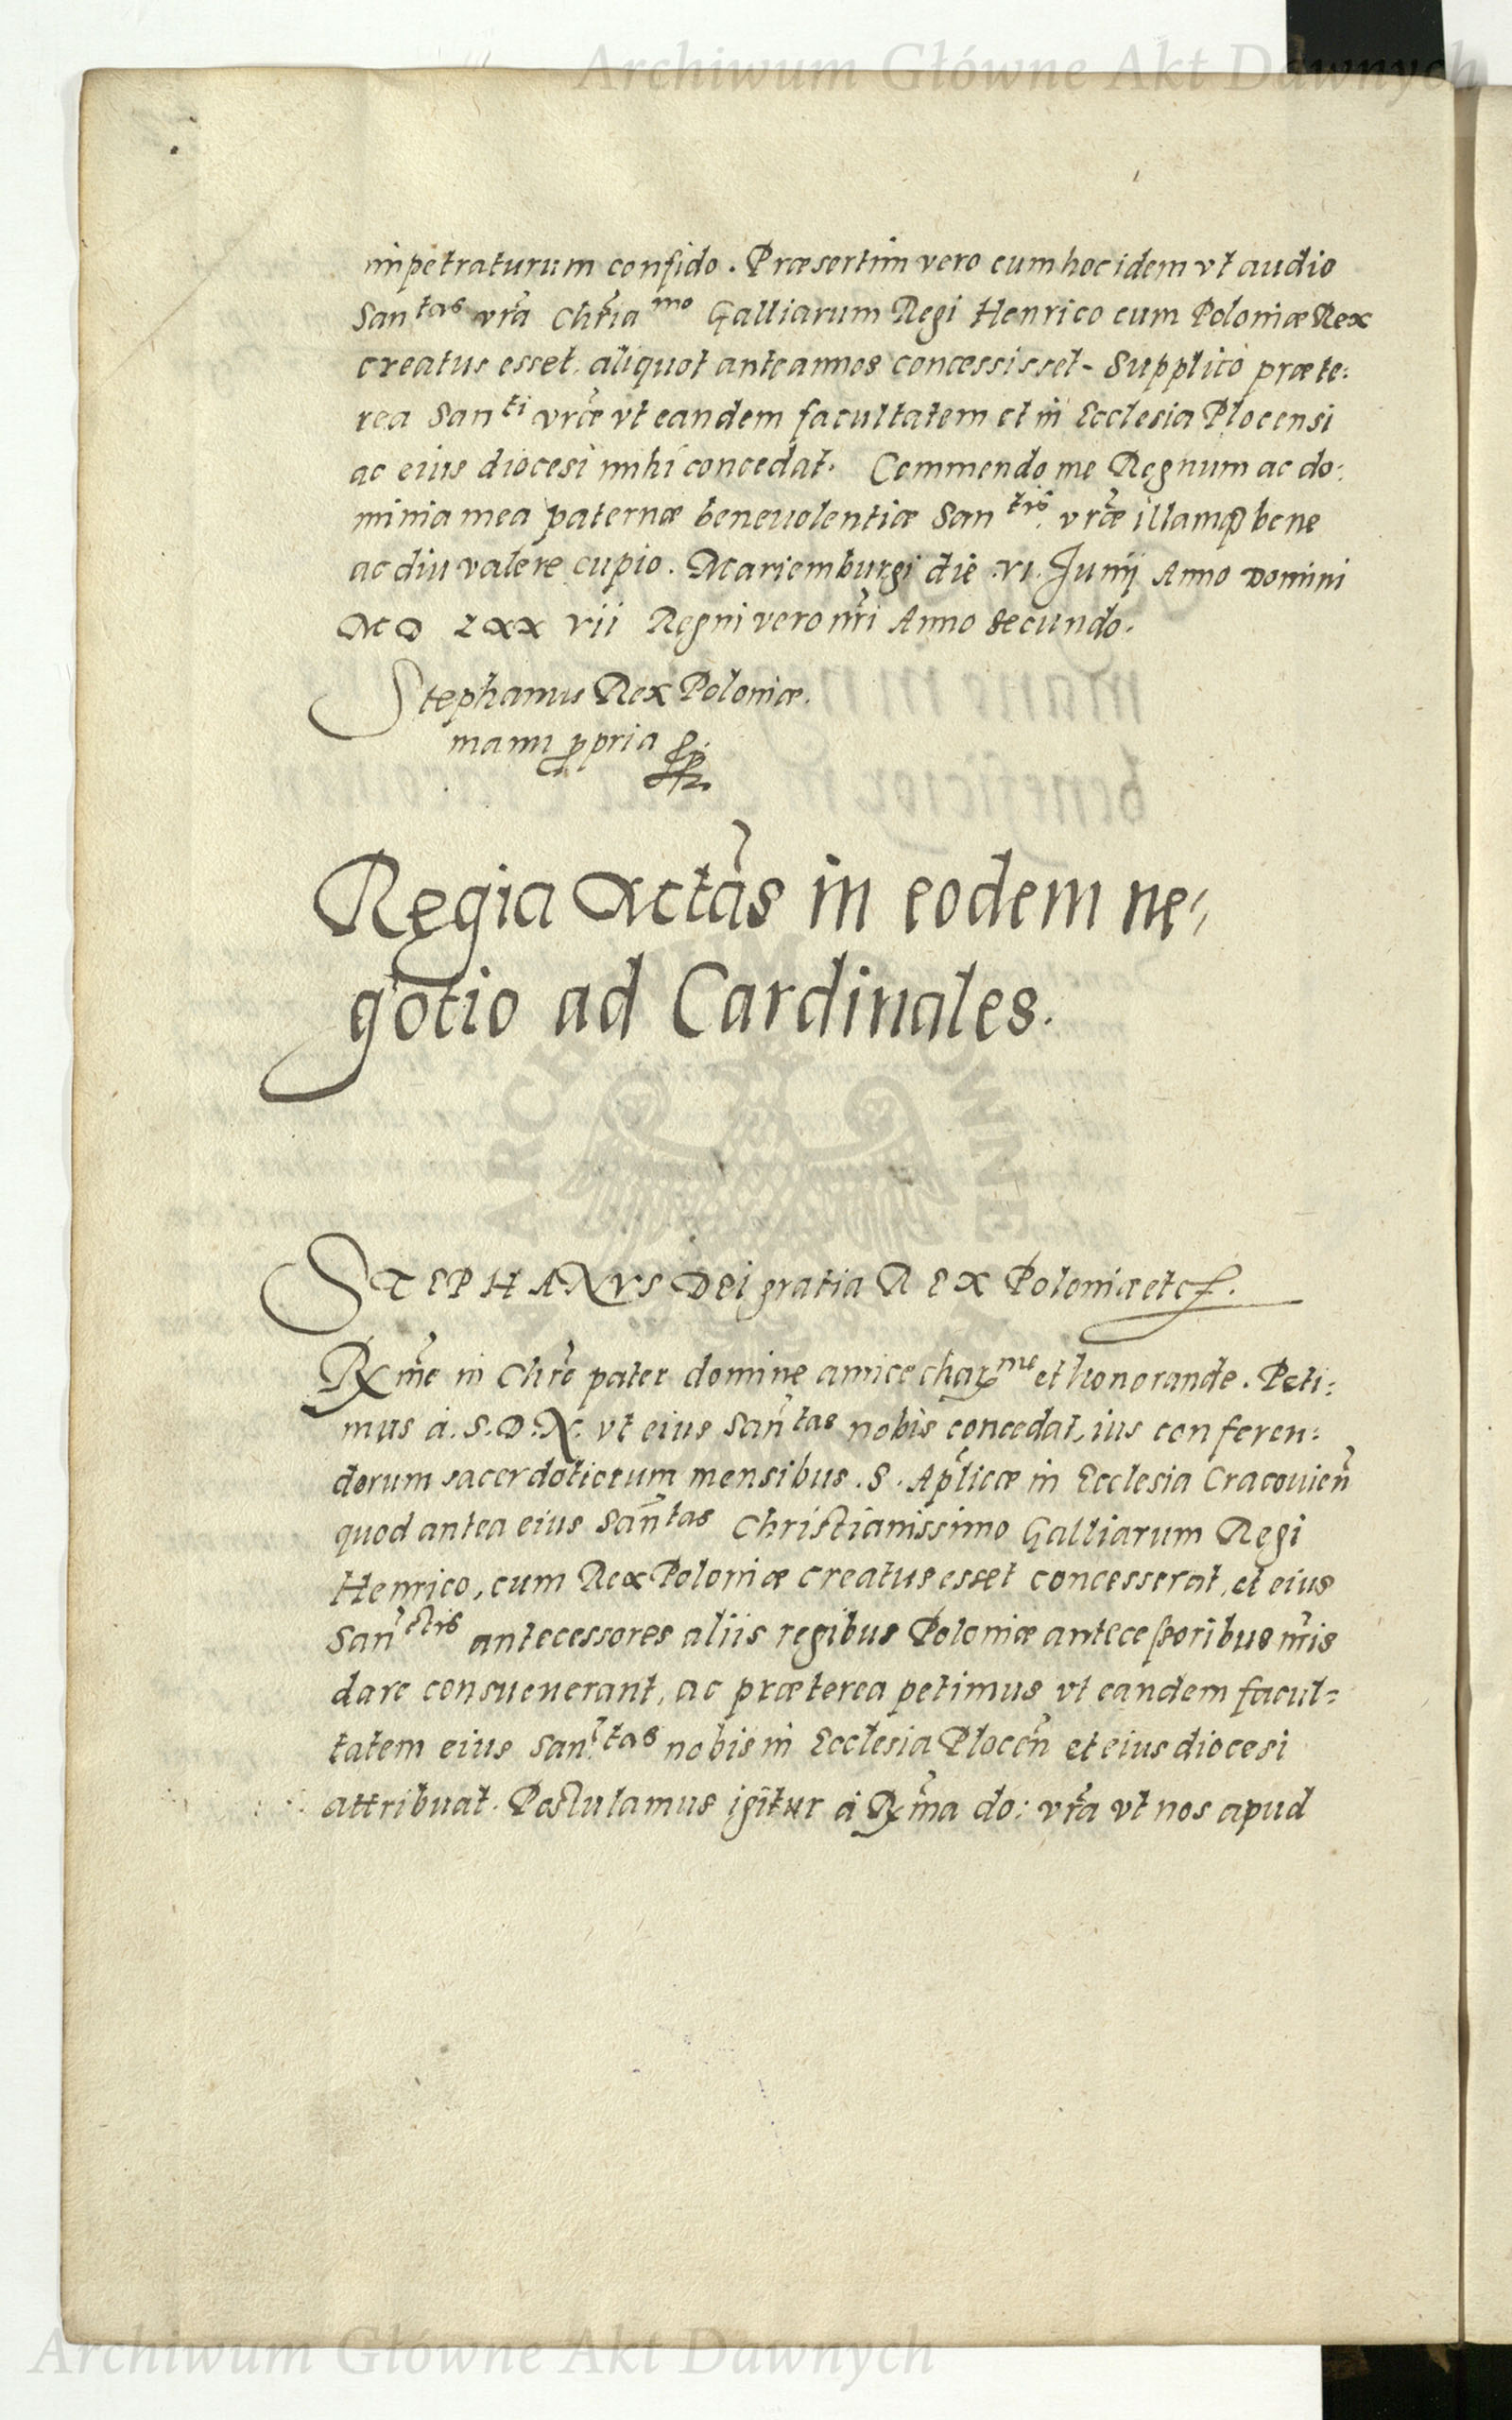 Archiwum Główne Akt Dawnych
impetraturum confido. Præsertim vero cum hoc idem vt audio
San̄tas vr̄a Chr̄iamo Galliarum Regi Henrico cum Poloniæ Rex
creatus esset, aliquot ante annos concessisset. Supplico præte:
rea Santi vr̄æ vt eandem facultatem et in Ecclesia Plocensi
ac eius diocesi mihi concedat. Commendo me Regnum ac do:
minia mea paternæ beneuolentiæ Santis vr̄æ illamq bene
ac diu valere cupio. Mariemburgi die .vi. Junij Anno Domini
MD LXX vii Regni vero nr̄i Anno secundo.
Stephanus Rex Poloniæ.
manu ppria
Regia Mctās in eodem ne,
gotio ad Cardinales.
STEPHANVS Dei gratia REX Poloniæ etc.
Rx m̄e in Chr̄e pater domine amice charme et honorande. Peti:
mus a. S.D.N. vt eius San̄tas nobis concedat, ius conferen:
dorum sacerdotiorum mensibus .S. Ap̄licæ in Ecclesia Cracouien̄
quod antea eius San̄tas Christianissimo Galliarum Regi
Henrico, cum Rex Poloniæ creatus esset concesserat, et eius
San̄ctis antecessores aliis regibus Poloniæ antecessoribus nr̄is
dare consueuerant, ac præterea petimus vt eandem facul=
tatem eius San̄tas nobis in Ecclesia Plocen̄ et eius diocesi
attribuat. Postulamus igitur à Rx m̄a do: vr̄a vt nos apud
Archiwum Główne Akt Dawnych